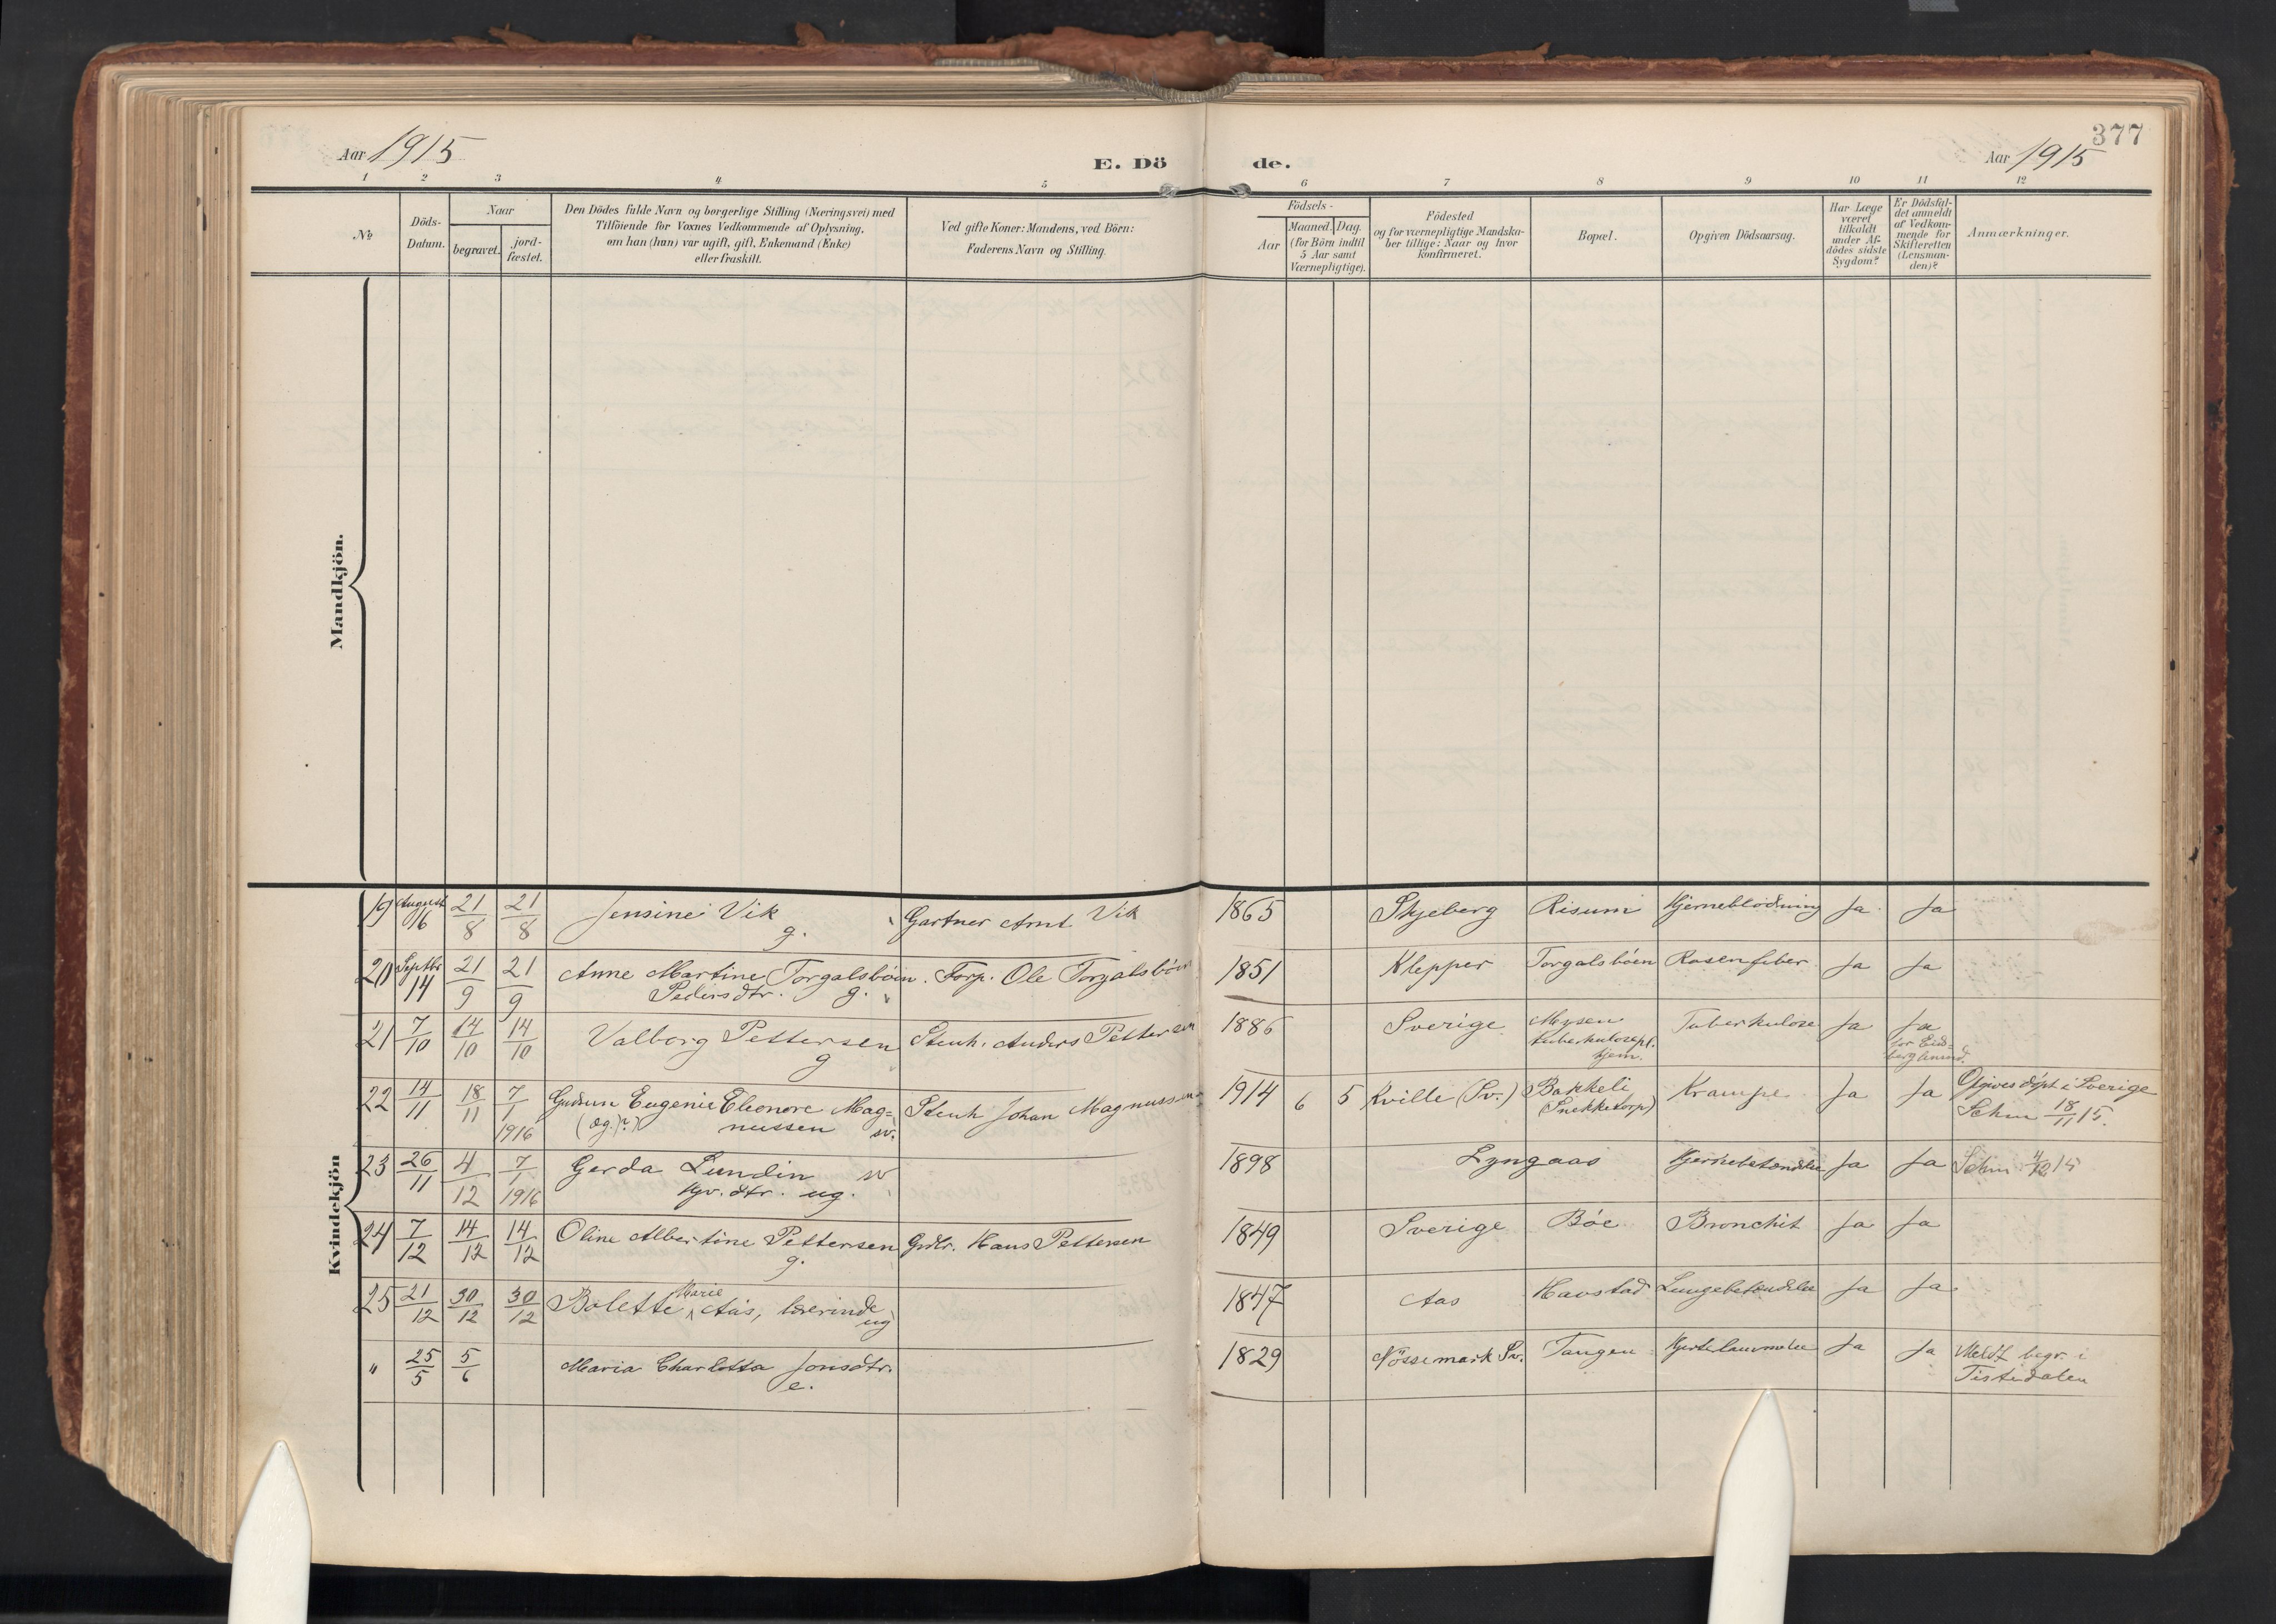 377
Aar 1915
E. Dö de.
Aar 1915
1 2 3 4 5 6 7 8 9 10 11 12
No
Döds-
Datum.
Naar
begravet.
jord-
fæstet.
Den Dödes fulde Navn og borgerlige Stilling (Næringsvei) med
Tilföiende for Voxnes Vedkommende af Oplysning,
om han (hun) var ugift, gift, Enkemand (Enke)
eller fraskilt.
Ved gifte Koner: Mandens, ved Börn:
Faderens Navn og Stilling.
Födsels-
Aar
Maaned. Dag.
(for Börn indtil
5 Aar samt
Værnepligtige).
Födested
og for værnepligtige Mandska-
ber tillige: Naar og hvor
konfirmeret.
Bopæl.
Opgiven Dödsaarsag.
Har Læge
været
tilkaldt
under Af-
dödes sidste
Sygdom?
Er Dödsfal-
det anmeldt
af Vedkom-
mende for
Skifteretten
(Lensman-
den)?
Anmærkninger.
Mandkjön.
Kvindekjön
19 August 16 21/8 21/8 Jensine Vik g. Gartner Arnt Vik 1865 Skjeberg Risum Hjerneblödning Ja Ja
20 Septbr 14 21/9 21/9 Anne Martine Torgalsböen. Torp. Ole Torgalsböen 1851 Klepper Torgalsböen Rosenfeber Ja Ja
Pedersdtr. g.
21 7/10 14/10 14/10 Valborg Pettersen Stenh. Anders Pettersen 1886 Sverige Mysen Tuberkulose Ja Ja
g tuberkulosepl. hjem. for Eid-
berg lensmd.
22 14/11 18/11 7/1 1916 Gudrun Eugenie Eleonore Mag= Stenh Johan Magnussen 1914 6 5 Kville (Sv.) Bakkeli Krampe Ja Ja Opgives döpt i Sverige
(æg.?) nussen sv. (Snekketorp) 18/11 15.
23 26/11 4/12 7/1 1916 Gerda Lundin sv 1898 Lyngaas Hjernebetændelse Ja Ja 4/12 15
dtr. ug.
24 7/12 14/12 14/12 Oline Albertine Pettersen Grdbr. Hans Pettersen 1849 Sverige Böe Bronchit Ja Ja
g.
25 21/12 30/12 30/12 Bolette Marie Aas, lærerinde 1847 Aas Havstad Lungebetændelse Ja Ja
ug
" 25/5 5/6 Maria Charlotta Jonsdtr. 1829 Nössemark Sv. Tangen Hjertelammelse Ja Ja Meldt begr. i
e. Tistedalen